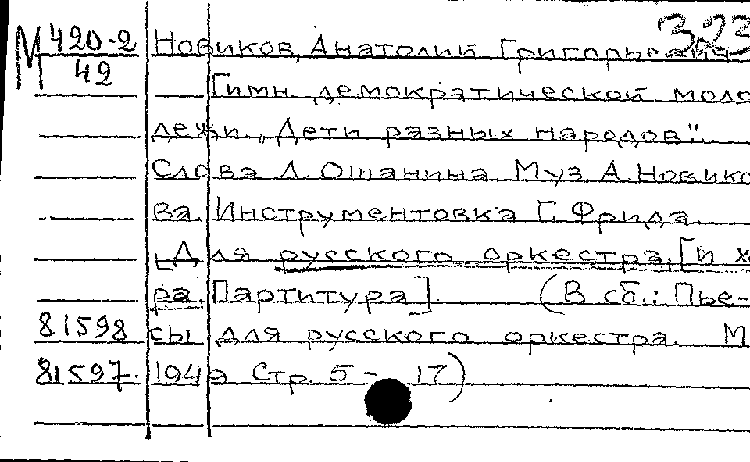 323
М 420-2 Новиков, Анатолий Григорьевич
42 Гимн демократической моло
дежи. „Дети разных народов".
Слова Л. Ошанина Муз А. Новико
ва. Инструментовка Г. Фрида.
[Для русского оркестра, [и х
ра. Партитура]. (В сб.: Пье-
81598 сы для русского оркестра. М
81597. Стр. 5 - 17)